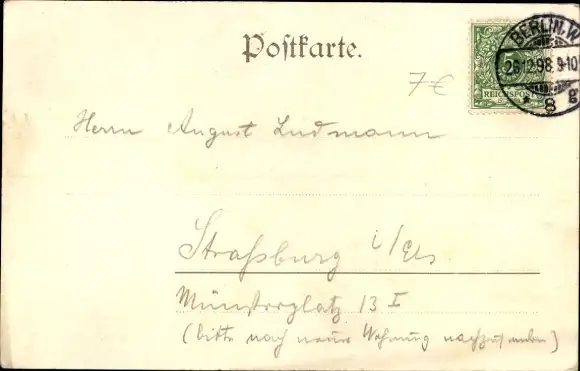 Postkarte.
BERLIN.W.
26.12.98. 9-10
8 g
REICHSPOST
7€
Herrn August Ludmann
Straßburg i/Els
Münsterplatz 13 I
(bitte nach neue Wohnung nachzusenden)